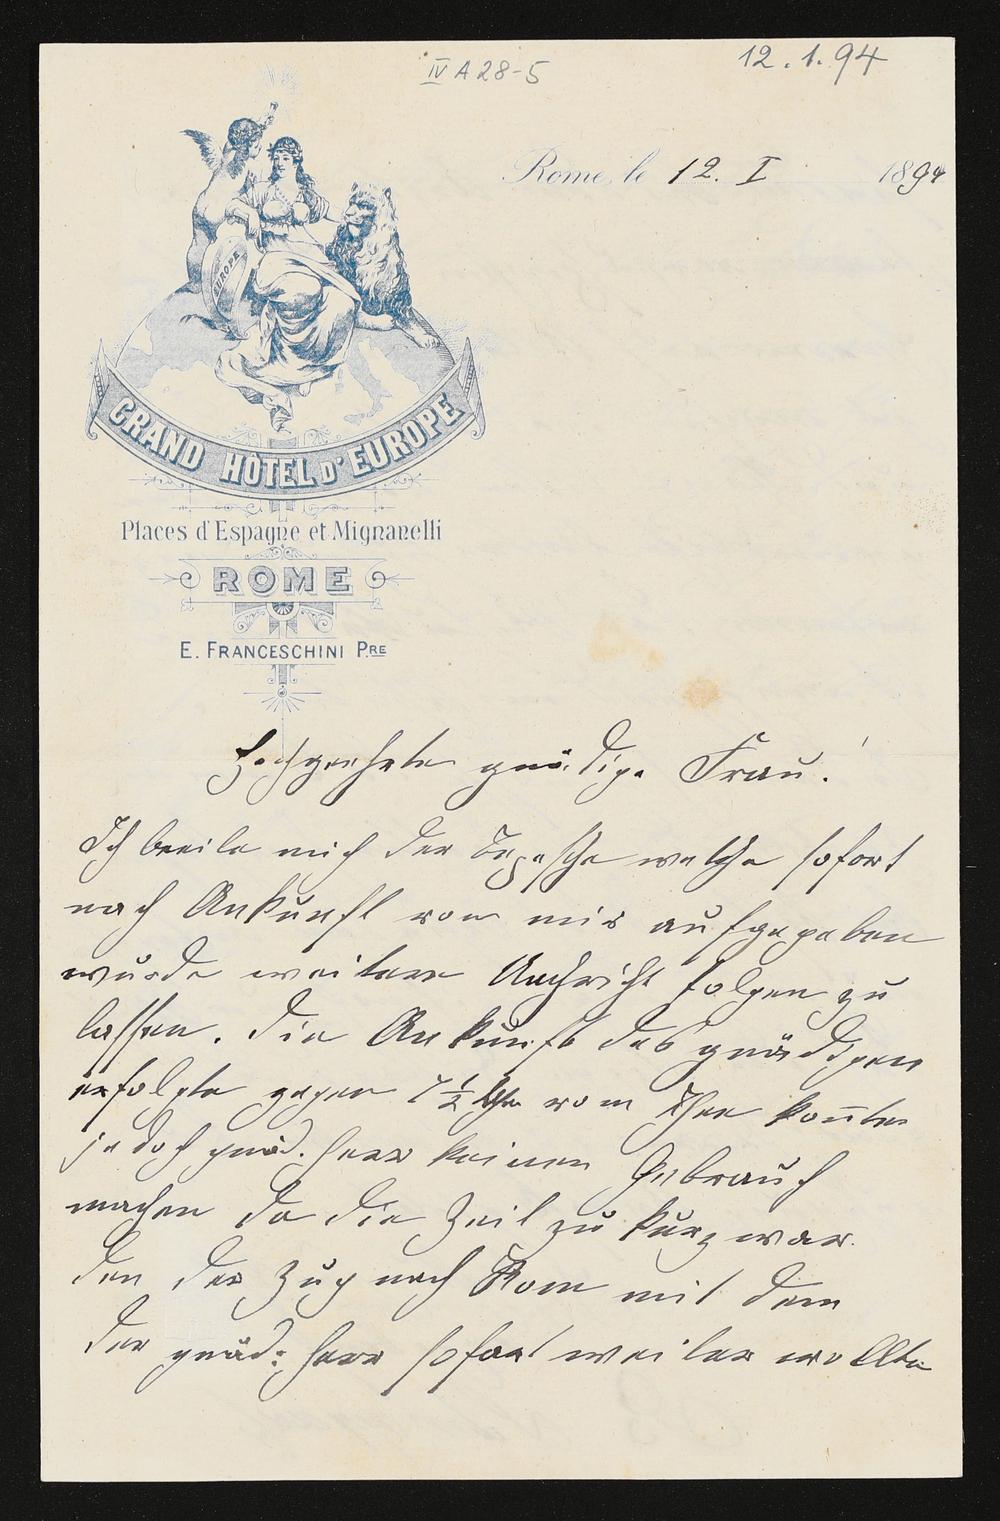 IV A 28-5
12.1.94
Rome, le 12. I 1894
EUROPE
GRAND HÔTEL D'EUROPE
Places d'Espagne et Mignanelli
ROME
E. FRANCESCHINI PRE
Hochgeehrte gnädige Frau!
Ich beeile mich der Depesche welche sofort
nach Ankunft von mir aufgegeben
wurde weitere Nachricht folgen zu
lassen. Die Ankunft des gnädigen
erfolgte gegen 7 1/2 Uhr vom Thee konnten
jedoch gnäd. Herr keinen Gebrauch
machen da die Zeit zu kurz war.
den der Zug nach Rom mit dem
der gnäd: Herr sofort weiter wollte